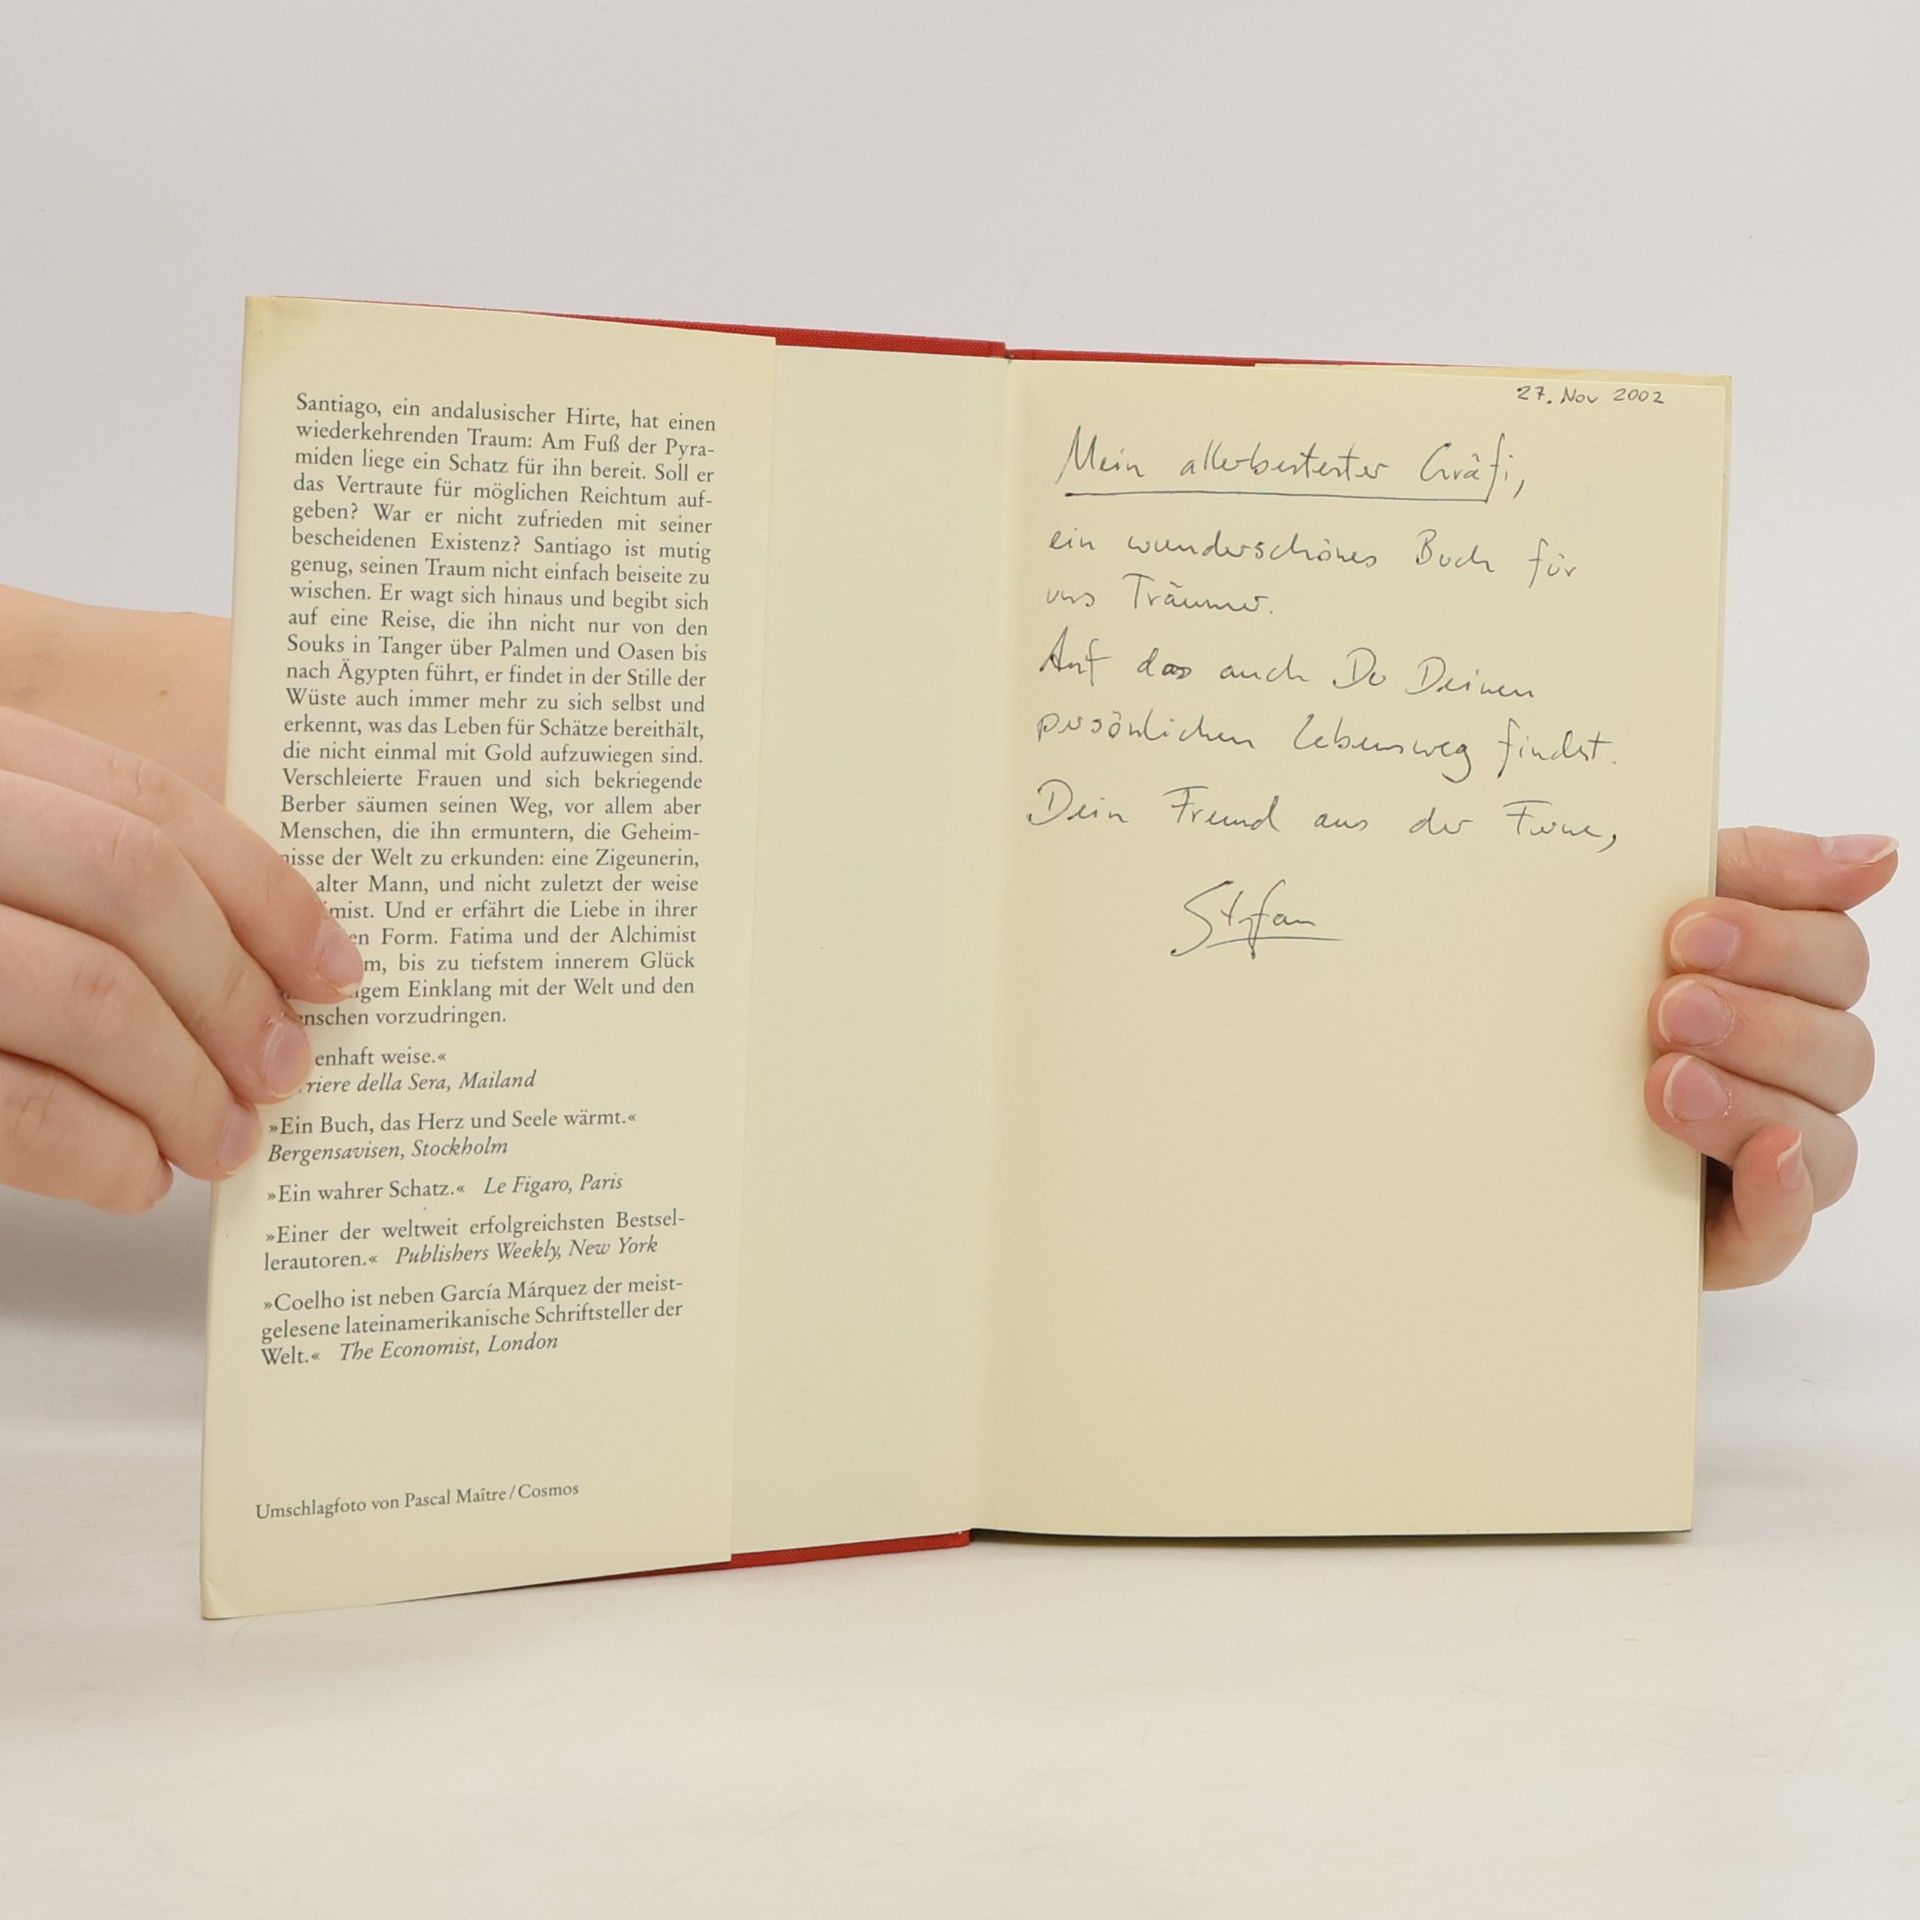 Santiago, ein andalusischer Hirte, hat einen
wiederkehrenden Traum: Am Fuß der Pyra-
miden liege ein Schatz für ihn bereit. Soll er
das Vertraute für möglichen Reichtum auf-
geben? War er nicht zufrieden mit seiner
bescheidenen Existenz? Santiago ist mutig
genug, seinen Traum nicht einfach beiseite zu
wischen. Er wagt sich hinaus und begibt sich
auf eine Reise, die ihn nicht nur von den
Souks in Tanger über Palmen und Oasen bis
nach Ägypten führt, er findet in der Stille der
Wüste auch immer mehr zu sich selbst und
erkennt, was das Leben für Schätze bereithält,
die nicht einmal mit Gold aufzuwiegen sind.
Verschleierte Frauen und sich bekriegende
Berber säumen seinen Weg, vor allem aber
Menschen, die ihn ermuntern, die Geheim-
nisse der Welt zu erkunden: eine Zigeunerin,
alter Mann, und nicht zuletzt der weise
mist. Und er erfährt die Liebe in ihrer
en Form. Fatima und der Alchimist
m, bis zu tiefstem innerem Glück
igem Einklang mit der Welt und den
enschen vorzudringen.
enhaft weise.«
riere della Sera, Mailand
»Ein Buch, das Herz und Seele wärmt.«
Bergensavisen, Stockholm
»Ein wahrer Schatz.« Le Figaro, Paris
»Einer der weltweit erfolgreichsten Bestsel-
lerautoren.« Publishers Weekly, New York
»Coelho ist neben García Márquez der meist-
gelesene lateinamerikanische Schriftsteller der
Welt.« The Economist, London
Umschlagfoto von Pascal Maître/Cosmos
27. Nov 2002
Mein allerbesterter Gräfi,
ein wunderschönes Buch für
uns Träumer.
Auf das auch Du Deinen
persönlichen Lebensweg findest.
Dein Freund aus der Ferne,
Stefan